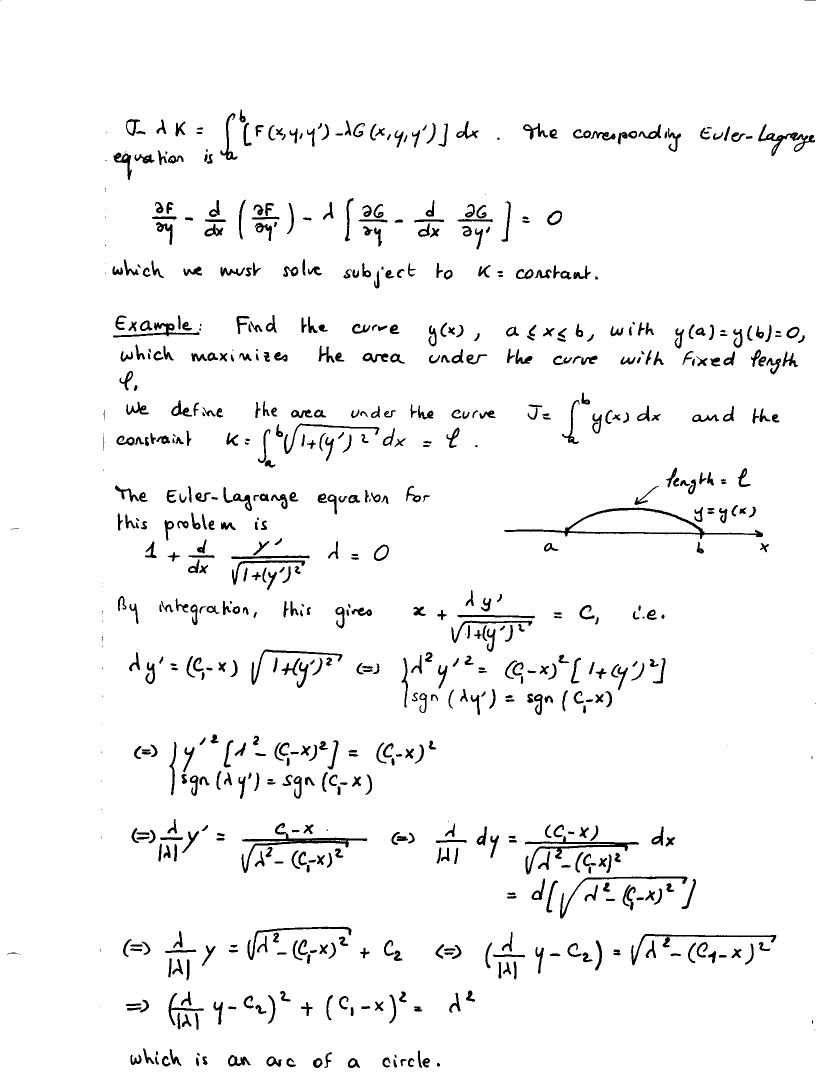 J - λK = ∫_a^b [F(x,y,y') - λG(x,y,y')] dx . The corresponding Euler-Lagrange
equation is
∂F/∂y - d/dx (∂F/∂y') - λ [∂G/∂y - d/dx ∂G/∂y'] = 0
which we must solve subject to K = constant.
Example: Find the curve y(x), a ≤ x ≤ b, with y(a)=y(b)=0,
which maximizes the area under the curve with fixed length
ℓ.
We define the area under the curve J = ∫_a^b y(x) dx and the
constraint K = ∫_a^b √(1+(y')²) dx = ℓ .
The Euler-Lagrange equation for
this problem is
1 + d/dx y'/√(1+(y')²) λ = 0
length = ℓ
y=y(x)
a b x
By integration, this gives x + λy'/√(1+(y')²) = C₁ i.e.
λy' = (C₁-x) √(1+(y')²) ⇔ { λ²y'² = (C₁-x)² [1+(y')²]
sgn(λy') = sgn(C₁-x)
⇔ { y'² [λ² - (C₁-x)²] = (C₁-x)²
sgn(λy') = sgn(C₁-x)
⇔ λ/|λ| y' = C₁-x/√(λ²-(C₁-x)²) ⇔ λ/|λ| dy = (C₁-x)/√(λ²-(C₁-x)²) dx
= d[√(λ²-(C₁-x)²)]
⇔ λ/|λ| y = √(λ²-(C₁-x)²) + C₂ ⇔ (λ/|λ| y - C₂) = √(λ²-(C₁-x)²)
⇒ (λ/|λ| y - C₂)² + (C₁-x)² = λ²
which is an arc of a circle.